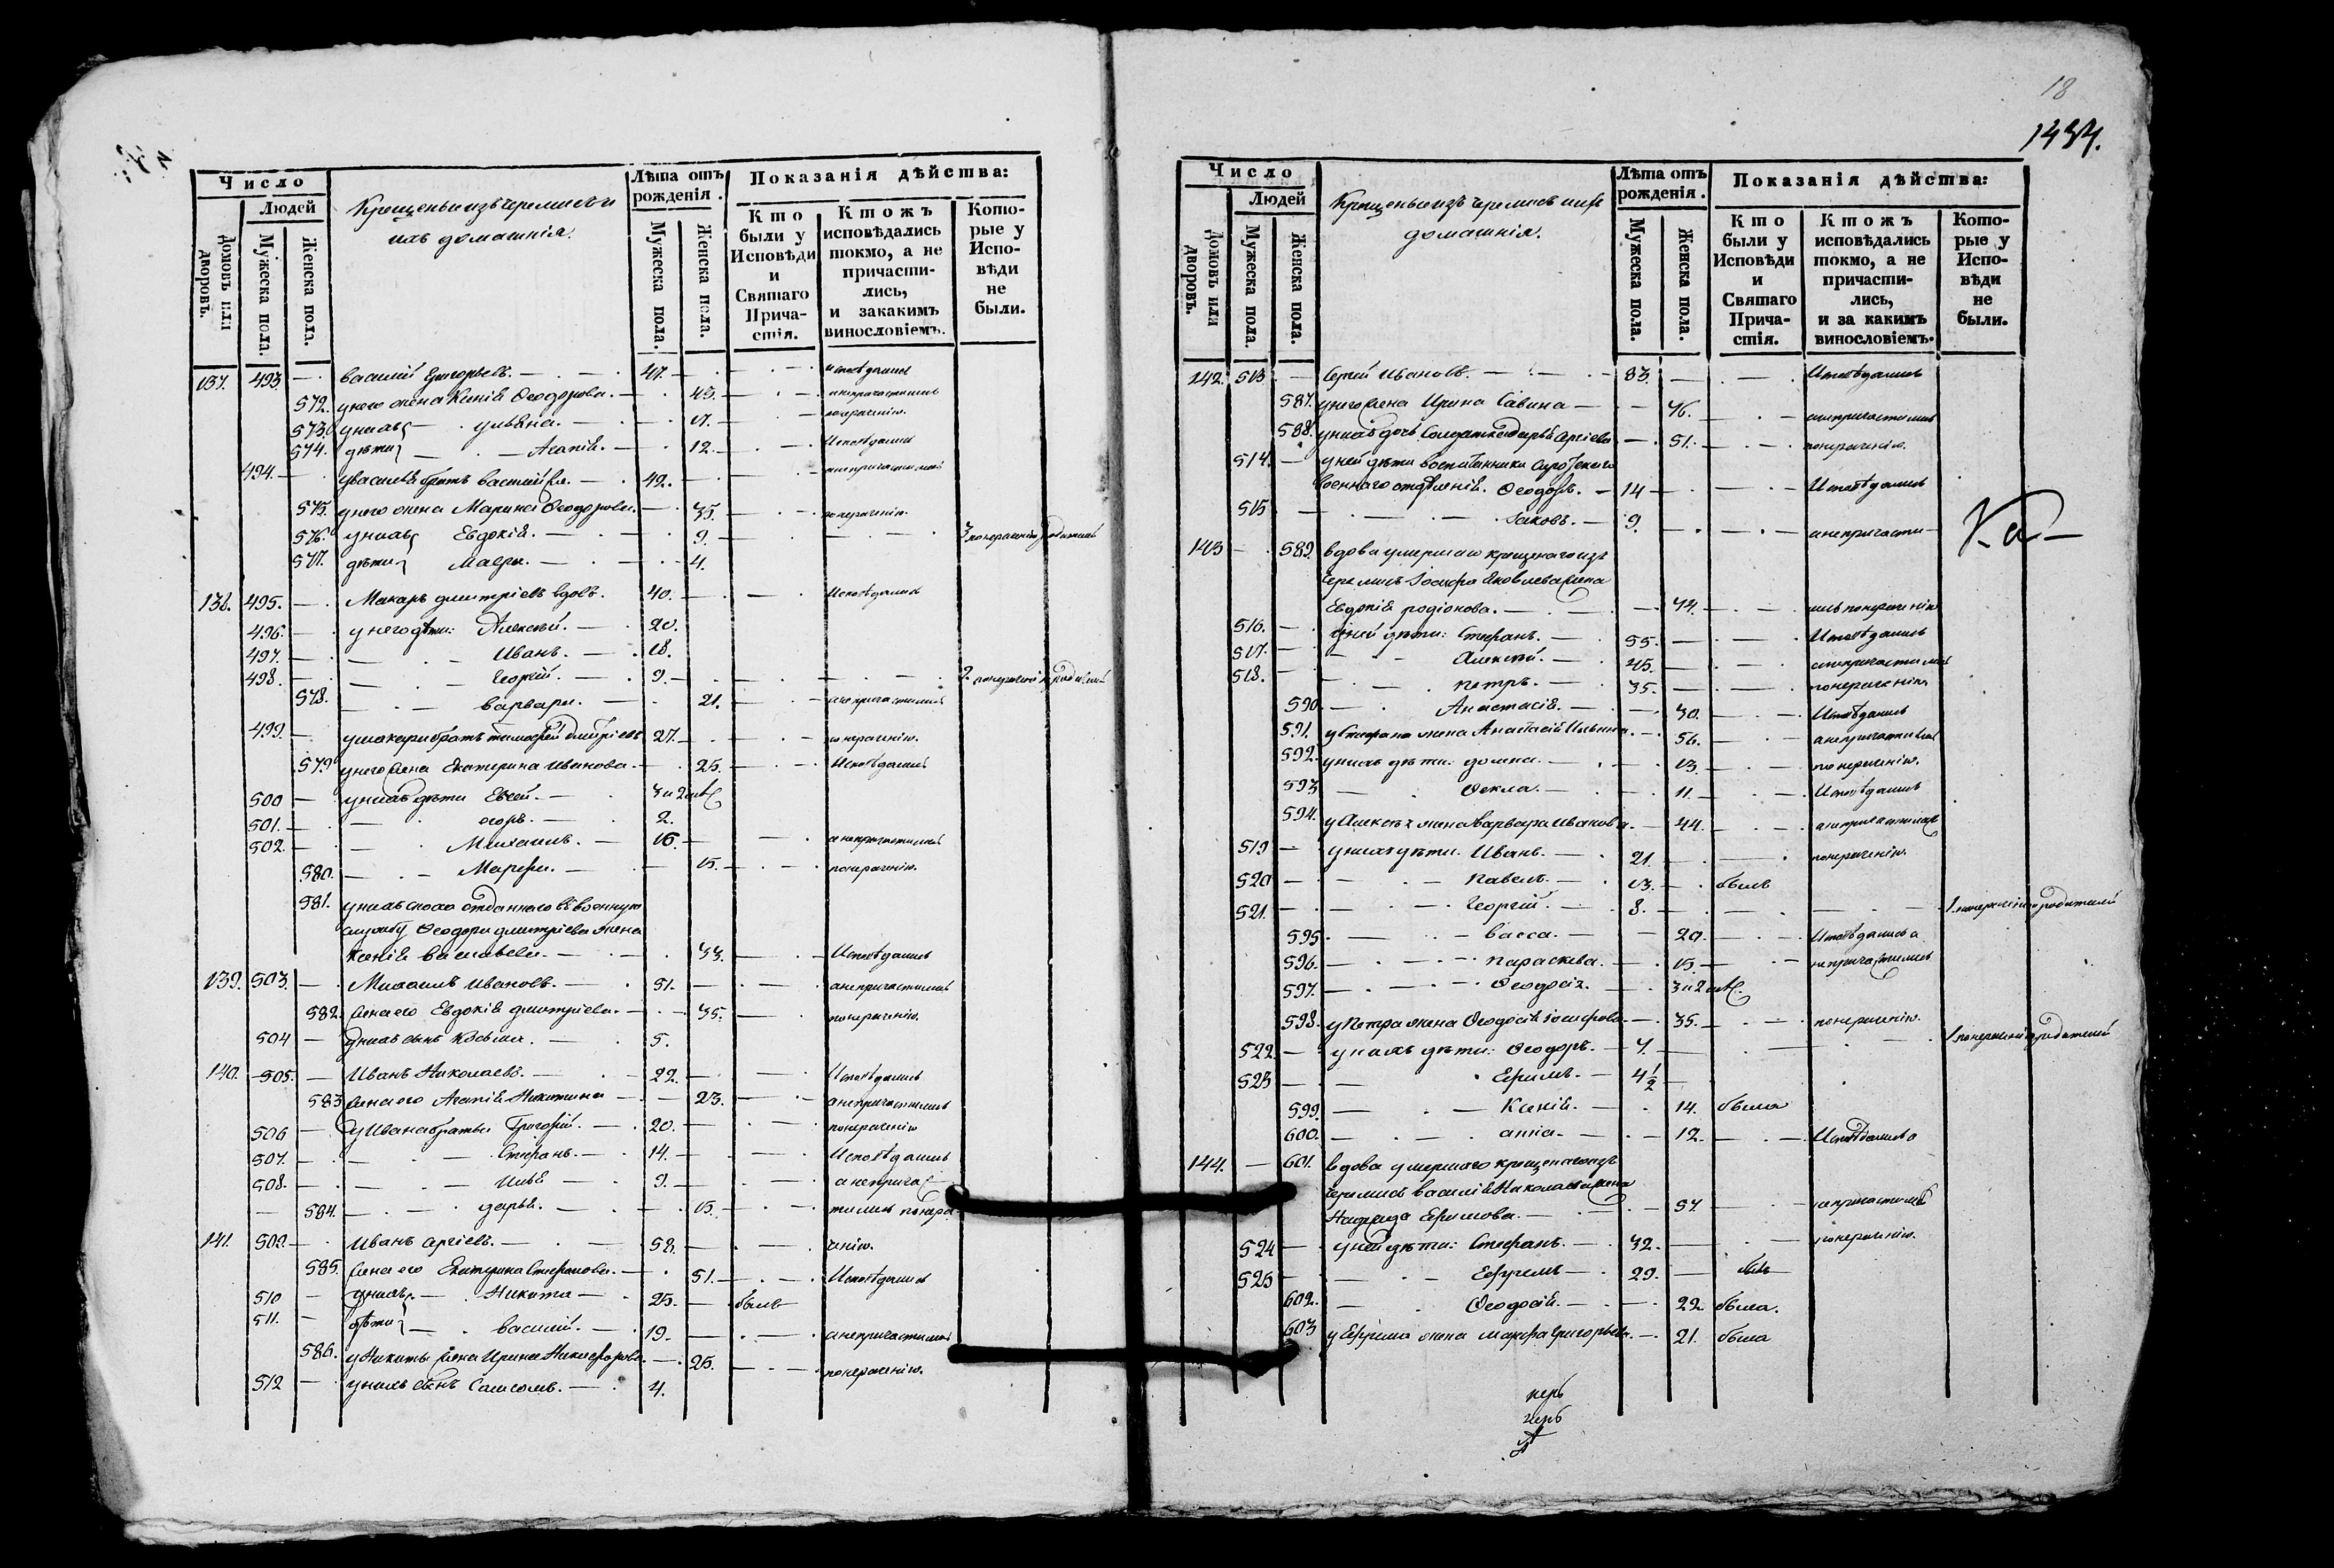 Число
Людей
Домовъ или дворовъ.
Мужеска пола.
Женска пола.
Крещеные изъ черемисъ и
ихъ домашнія.
Лѣта отъ рожденія.
Мужеска пола.
Женска пола.
Показанія дѣйства:
Кто были у Исповѣди и Святаго Причастія.
Ктожъ исповѣдались токмо, а не причастились, и закакимъ винословіемъ.
Которые у Исповѣди не были.
137. 493. Василій Григорьевъ. 47. исповѣдались
572. у него жена Ксенія Ѳеодорова. 43. а не причастились
573. у нихъ Ульяна. 17. по нерачению.
574. дѣти Агапія. 12. Исповѣдались
494. у Василья братъ Василій же. 42. а не причастились
575. у него жена Марина Ѳеодорова. 35. по нерачению.
576. у нихъ Евдокія. 9. по нерачению родителей
577. дѣти Мавра. 4.
138. 495. Макаръ Дмитріевъ вдовъ. 40. Исповѣдались
496. у него дѣти: Алексѣй. 20.
497. Иванъ. 18.
498. Георгій. 9. 2. по нерачению родителей
578. Варвара. 21. а не причастились
499. у Макара братъ Тимофей Дмитріевъ 27. по нерачению.
579. у него жена Екатерина Иванова. 25. Исповѣдались
500 у нихъ дѣти Евсей.
501. Егоръ. 2.
502. Михаилъ. 16. а не причастились
580. Марфа. 15. по нерачению.
581. у нихъ сноха отданнаго въ военную
службу Ѳеодора Дмитріева жена
Ксенія Васильева. 33. Исповѣдались
139. 503. Михаилъ Ивановъ. 51. а не причастились
582. жена его Евдокія Дмитріева. 35. по нерачению.
504 у нихъ сынъ Козьма. 5.
140. 505. Иванъ Николаевъ. 22. Исповѣдались
583 жена его Агапія Никитина 23. а не причастились
506 у Ивана братья Григорій. 20. по нерачению
507. Стефанъ. 14. Исповѣдались
508. Илья 9. а не причас
584. Дарья. 15. тились по нера
141. 509. Иванъ Аргіевъ. 58. чению.
585. жена его Екатерина Стефанова. 51. Исповѣдались
510 у нихъ Никита 25. былъ
511. дѣти Василій. 19. а не причастились
586. у Никиты жена Ирина Никифорова. 25. по нерачению.
512 у нихъ сынъ Самсонъ. 4.
18
1434.
Число
Людей
Домовъ или дворовъ.
Мужеска пола.
Женска пола.
Крещеные изъ черемисъ и ихъ
домашнія.
Лѣта отъ рожденія.
Мужеска пола.
Женска пола.
Показанія дѣйства:
Кто были у Исповѣди и Святаго Причастія.
Ктожъ исповѣдались токмо, а не причастились, и за какимъ винословіемъ.
Которые у Исповѣди не были.
142. 513 Сергей Ивановъ. 83. Исповѣдались
587. у него жена Ирина Савина 76. а не причастились
588. у нихъ дочь Солдатка Дарья Аргіева 51. по нерачению.
514. у ней дѣти воспитанники Сиротскаго
военнаго отдѣленія. Ѳеодоръ. 14 Исповѣдались
515 Іаковъ. 9. а не причасти
143 589. вдова умершаго крещенаго изъ
черемисъ Іосифа Яковлева жена
Евдокія Родіонова. 74. лись по нерачению
516. у ней дѣти: Стефанъ. 55. Исповѣдались
517. Алексѣй. 45. а не причастились
518. Петръ. 35. по нерачению
590. Анастасія. 30. Исповѣдались
591. у Стефана жена Анастасія Ильина. 56. а не причастились
592. у нихъ дѣти: Домна. 13. по нерачению.
593 Ѳекла. 11. Исповѣдались
594. у Алексѣя жена Варвара Иванова. 44. а не причастились
519 у нихъ дѣти. Иванъ. 21. по нерачению.
520 Павелъ. 13. былъ
521. Георгій. 8. 1. по нерачению родителей
595. Васса. 20. Исповѣдались а
596. Параскева. 15. не причастились
597. Ѳеодосія.
598. у Петра жена Ѳеодосія Іосифова 35. по нерачению.
522. у нихъ дѣти: Ѳеодоръ. 7. 1. по нерачению родителей
523 Ефимъ. 4½
599. Ксенія. 14. была
600. Анна. 12. Исповѣдались а
144. 601. вдова умершаго крещенаго изъ
черемисъ Василія Николаева жена
Надежда Ефимова. 57. не причастились
524 у ней дѣти: Стефанъ. 32. по нерачению.
525 Ефремъ 29. былъ
602. Ѳеодосія. 22. была.
603 у Ефрема жена Марфа Григорьева. 21. была